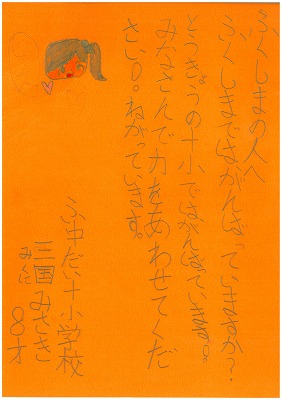 ふくしまの人へ
ふくしまではがんばっていますか?
とうきょうの十小ではがんばっています。
みなさんで力をあわせてくだ
さい。ねがっています。
ふ中だい十小学校
三国みさき
みくに
8才